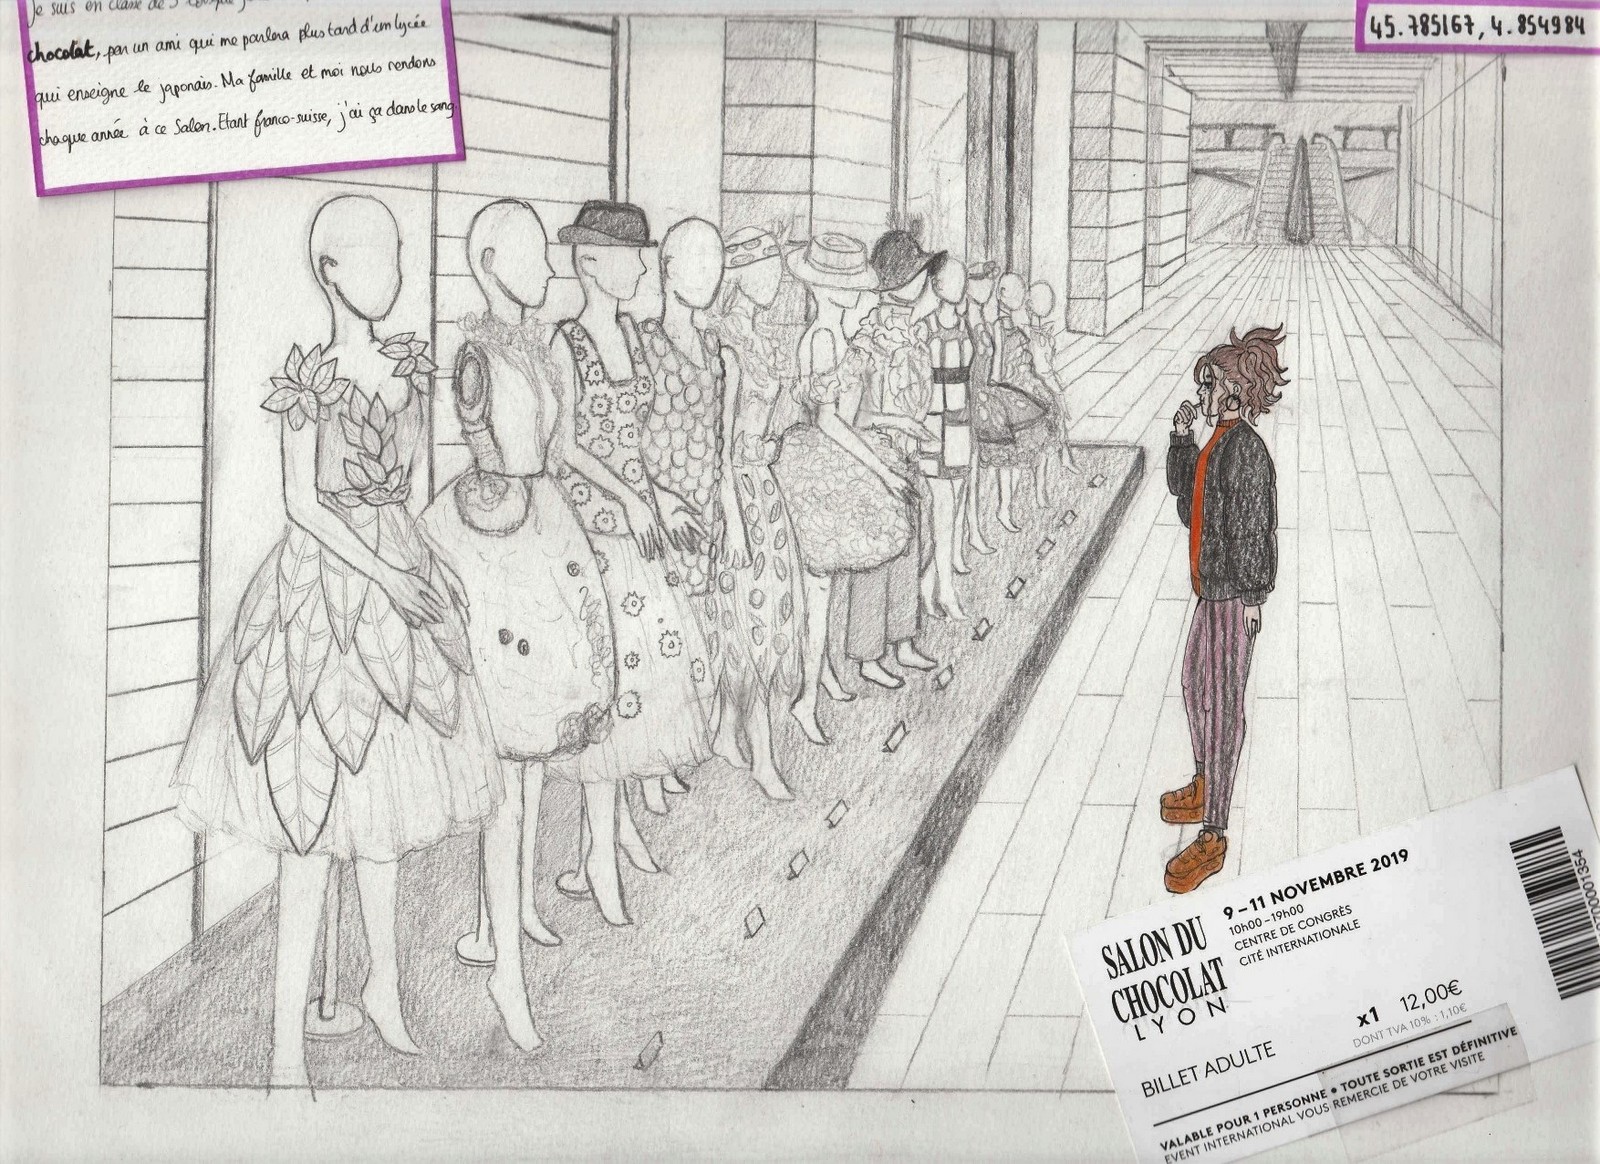 Je suis en classe de 3
chocolat, par un ami qui me parlera plus tard d'un lycée
qui enseigne le japonais. Ma famille et moi nous rendons
chaque année à ce Salon. Etant franco-suisse, j'ai ça dans le sang.
45.785167, 4.854984
SALON DU
CHOCOLAT
LYON
9-11 NOVEMBRE 2019
10h00-19h00
CENTRE DE CONGRÈS
CITÉ INTERNATIONALE
BILLET ADULTE
x1 12,00€
DONT TVA 10% : 1,10€
VALABLE POUR 1 PERSONNE • TOUTE SORTIE EST DÉFINITIVE
EVENT INTERNATIONAL VOUS REMERCIE DE VOTRE VISITE